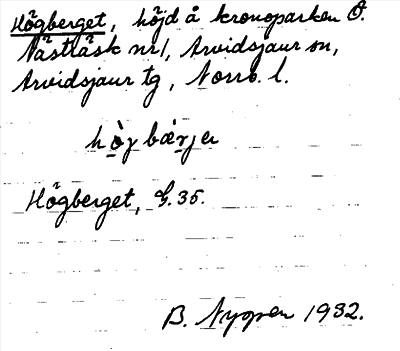 Högberget, höjd å kronoparken Ö.
Nästräsk nr 1, Arvidsjaur sn,
Arvidsjaur tg, Norrb. l.
hò̱γbæ̀rjer
Högberget, G.35.
B. Nygren 1932.